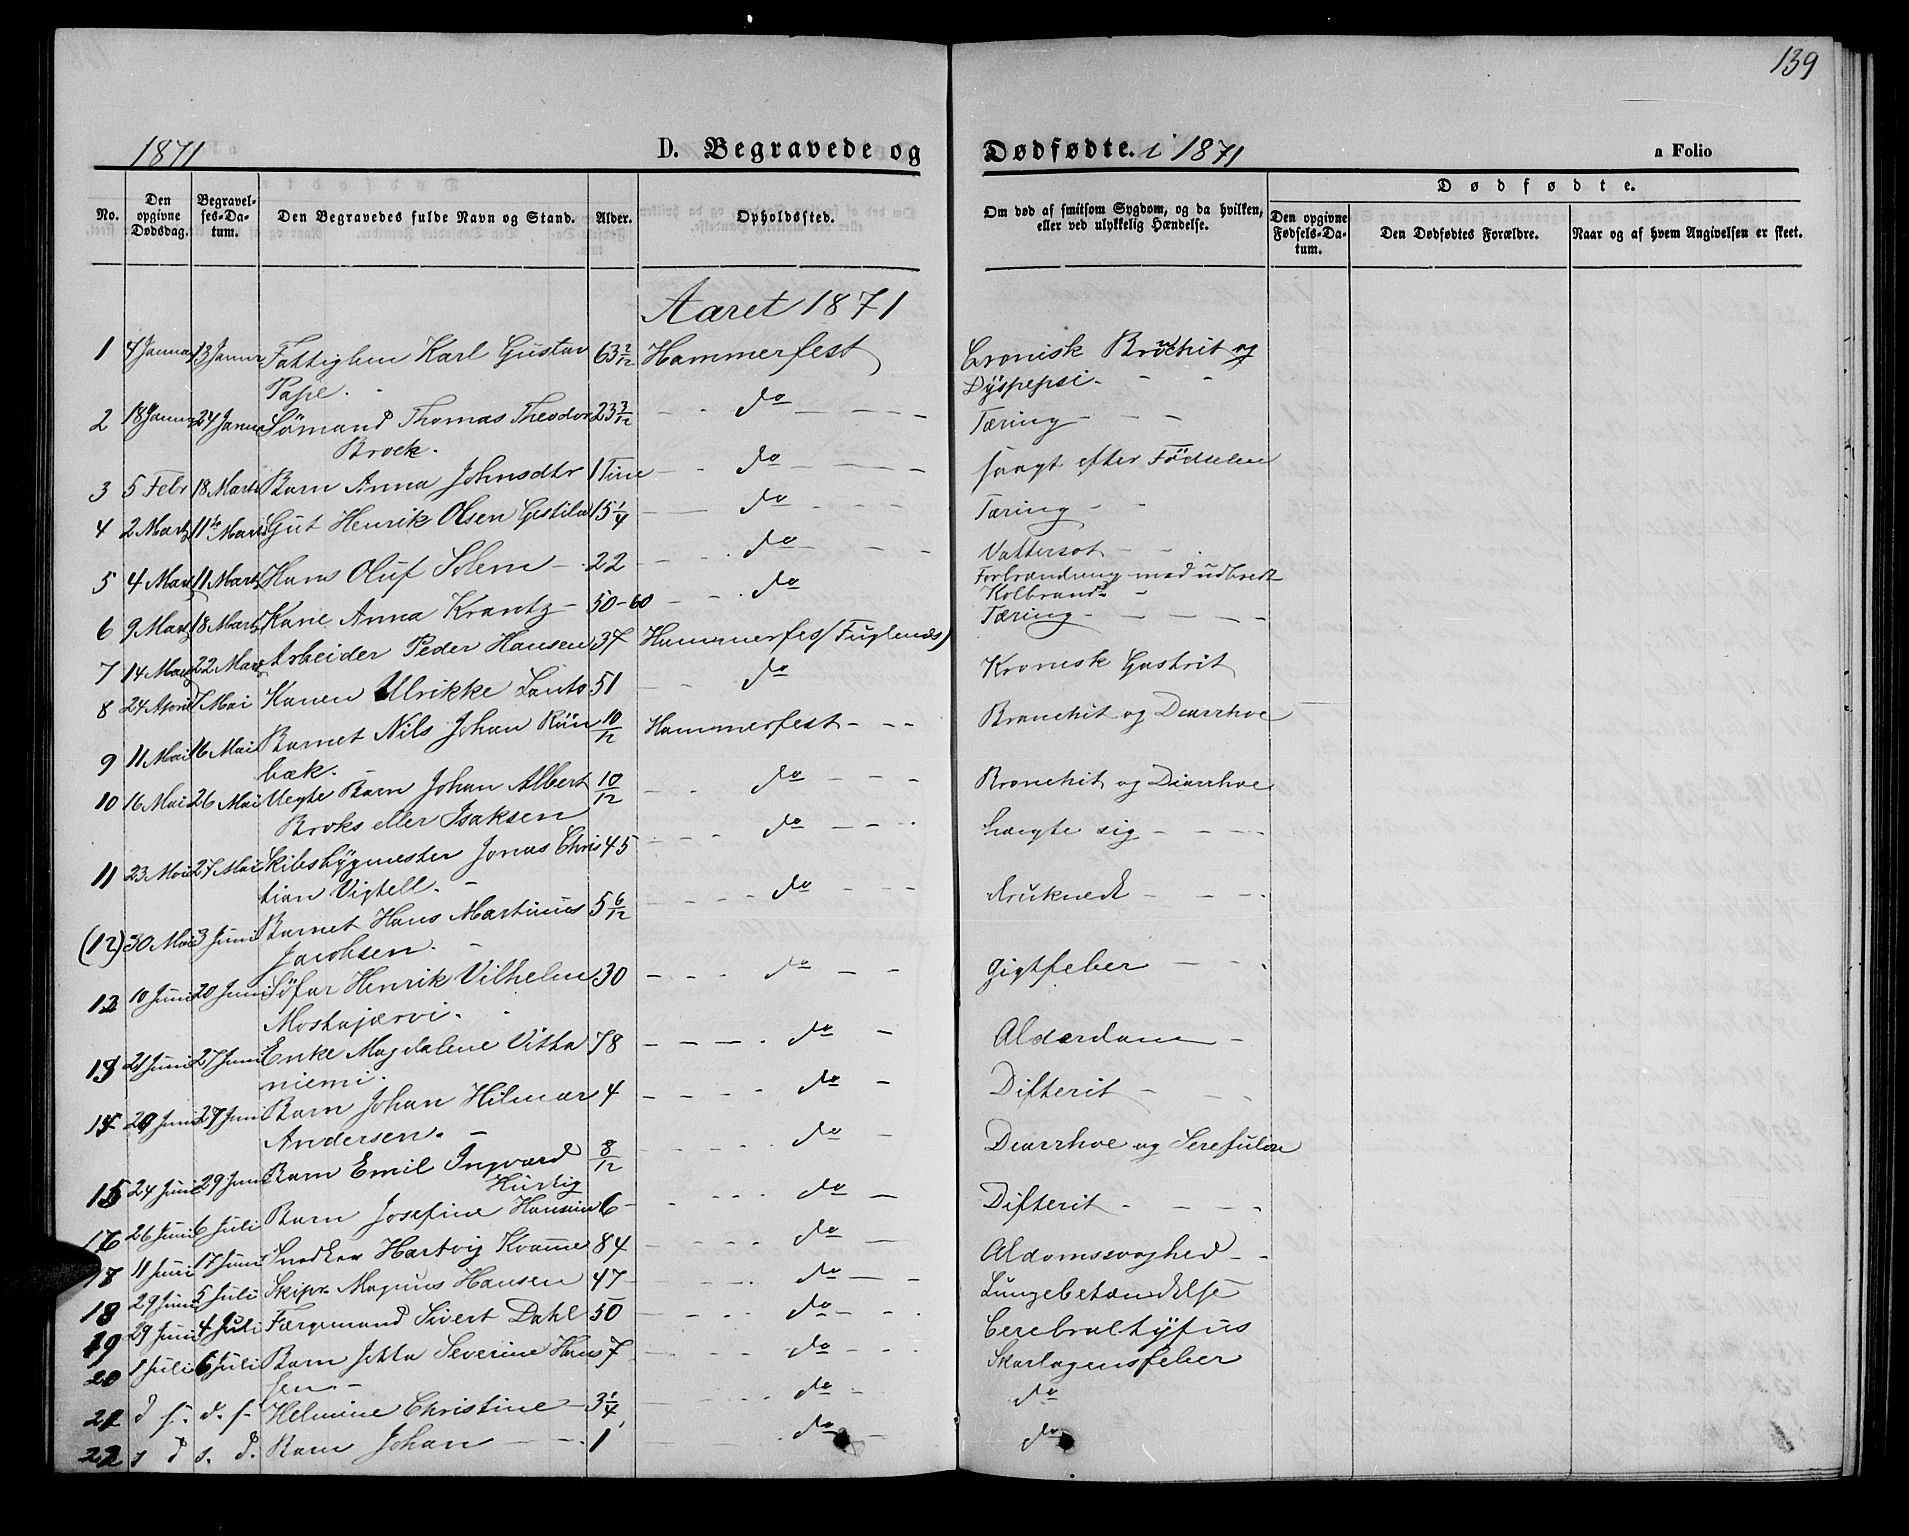 139
1871 D. Begravede og Dødfødte. i 1871 a Folio
No. Den opgivne Dødsdag. Begravelses-Datum. Den Begravedes fulde Navn og Stand. Alder. Opholdssted. Om død af smitsom Sygdom, og da hvilken, eller ved ulykkelig Hændelse. Dødfødte. Den opgivne Fødsels-Datum. Den Dødfødtes Forældre. Naar og af hvem Angivelsen er skeet.
Aaret 1871
1 4 Januar 13 Januar Fattiglem Karl Gustav 63 2/12 Hammerfest Cronisk Bronchit og
Pape. Dyspepsi.
2 18 Januar 24 Januar Sømand Thomas Theodor 23 3/12 do Tæring
Brock.
3 5 Febr 18 Marts Barn Anna Johnsdtr 1 Time do stragt efter Födselen
4 2 Marts 11te Marts Gut Henrik Olsen 15 1/4 do Tæring
5 4 Marts 11 Marts Hans Oluf Solem 22 do Vattersot
6 9 Marts 18 Marts Kone Anna Krantz 50-60 do Forbrænding med udbredt
Kolbrand
7 14 Marts 22 Marts Arbeider Peder Hansen 37 Hammerfest (Fuglenæs) Tæring
8 24 April 7 Mai Konen Ulrikke Lanto 51 do Kronisk Gastrit
9 11 Mai 16 Mai Barnet Nils Johan Rün 10/12 Hammerfest Bronchit og Diarrhoe
bæk.
10 16 Mai 26 Mai Uegte Barn Johan Albert 10/12 do Bronchit og Diarrhoe
Broks eller Isaksen
11 23 Mai 27 Mai Skibsbygmester Jonas Chris 45 do hængte sig
tian Vigtell.
(12) 30 Mai 3 Juni Barnet Hans Martinus 5 6/12 do druknedt
Jacobsen.
12 10 Juni 20 Juni Söfar Henrik Vilhelm 30 do Gigtfeber
Mostajærvi.
13 21 Juni 27 Juni Enke Magdalene Vitta 78 do Alderdom
niemi.
14 20 Juni 27 Juni Barn Johan Hilmar 4 do Difterit
Andersen.
15 24 Juni 29 Juni Barn Emil Ingvard 8/12 do Diarrhoe og
Hurtig
16 26 Juni 6 Juli Barn Josefine Hansen 6 do Difterit
17 11 Juni 17 Juni Snedker Hartvig Kvamme 84 do Aldomssvaghed
18 29 Juni 5 Juli Skipr. Magnus Hansen 47 do Lungebetændelse
19 29 Juni 4 Juli Færgemand Sivert Dahl 50 do Cerebraltyfus
20 1 Juli 6 Juli Barn Jetta Severine Han 7 do Skarlagensfeber
sen
21 d s. d. s. Helmine Christine 3 1/4 do do
22 s d s. d. Barn Johan 1 do do